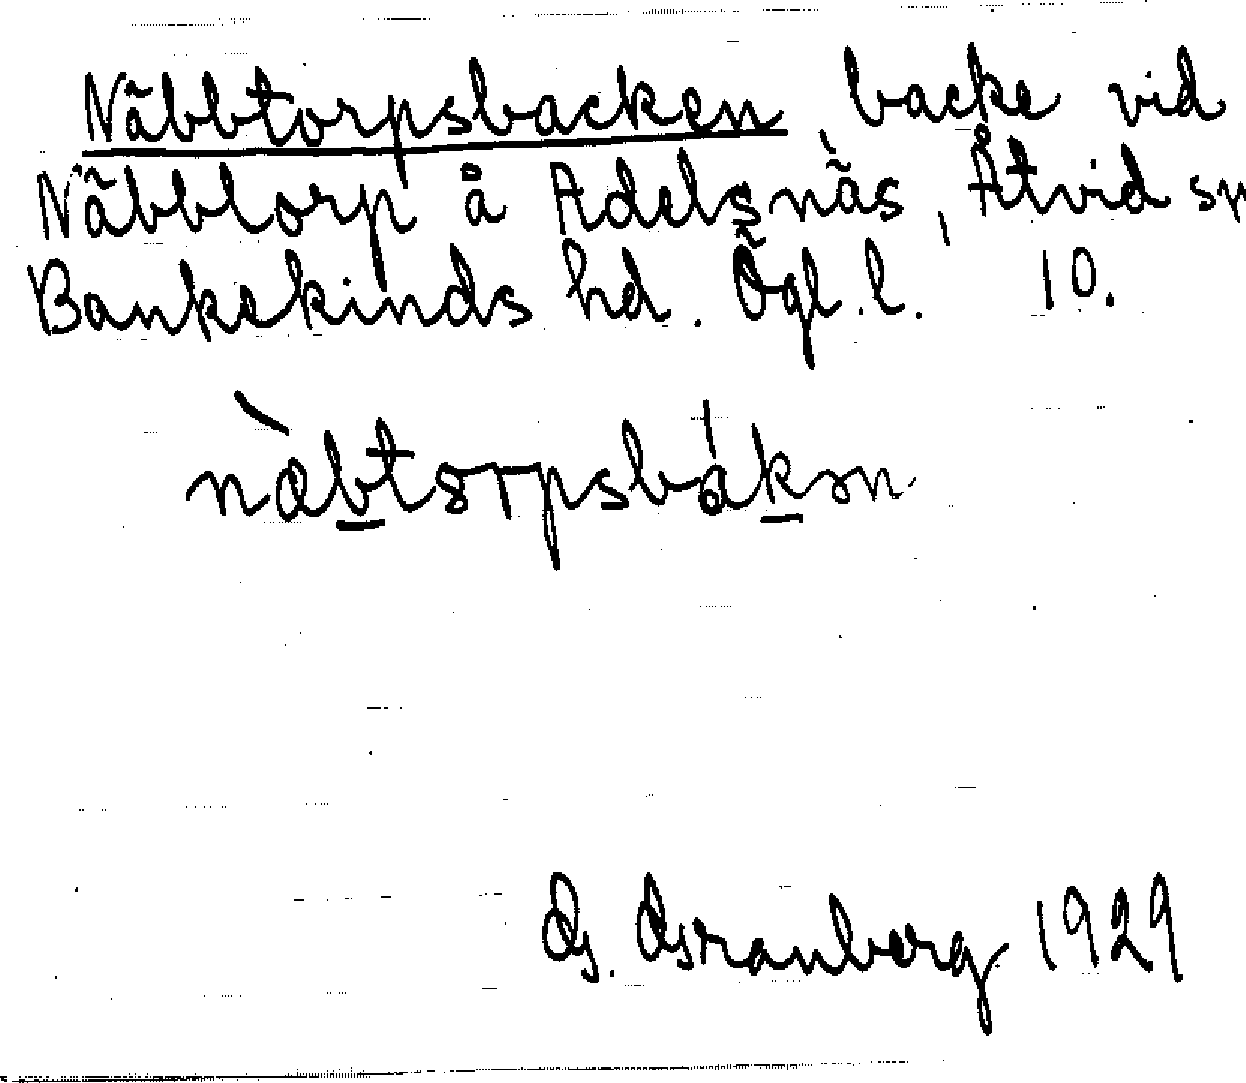 Näbbtorpsbacken, backe vid
Näbbtorp å Adelsnäs, Åtvid sn
Bankekinds hd. Ögl. l. 10.
nàbtorpsbákən
G. Granberg 1929